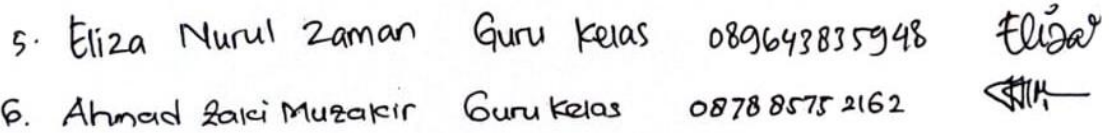 5. Eliza Nurul Zaman Guru Kelas 089643835948 Eliza
6. Ahmad Zaki Muzakir Guru Kelas 0878 8575 2162